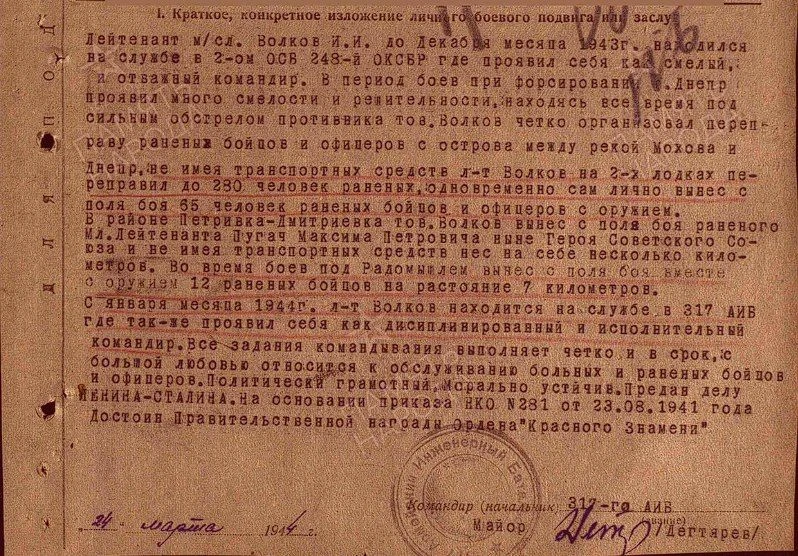 I. Краткое, конкретное изложение личного боевого подвига или заслу
Лейтенант м/сл. Волков И.И. до Декабря месяпа 1943г. находился
на службе в 2-ом ОСБ 248-й ОКСБР где проявил себя как смелый,
и отважный командир. В период боев при форсировании Днепр
проявил много смелости и решительности, находясь все время под
сильным обстрелом противника тов. Волков четко организовал переп-
раву раненых бойпов и офиперов с острова между рекой Мохова и
Днепр, не имея транспортных средств л-т Волков на 2-х лодках пе-
реправил до 280 человек раненых, одновременно сам лично вынес с
поля боя 65 человек раненых бойпов и офиперов с оружием.
В районе Петривка-Дмитриевка тов. Волков вынес с поля боя раненого
Мл. Лейтенанта Пугач Максима Петровича ныне Героя Советского Со-
юза и не имея транспортных средств нес на себе несколько кило-
метров. Во время боев под Радомышлем вынес с поля боя вместе
с оружием 12 раненых бойпов на растояние 7 километров.
С января месяпа 1944г. л-т Волков находится на службе в 317 АИБ
где так-же проявил себя как дисиплинированный и исполнительный
командир. Все задания командывания выполняет четко и в срок, с
большой любовью относится к обслуживанию больных и раненых бойпов
и офиперов. Политически грамотный, Морально устйчив. Предан делу
ЛЕНИНА-СТАЛИНА. На основании приказа НКО N281 от 23.08.1941 года
Достоин Правительственной награды Ордена "Красного Знамени"
Командир (начальник) 317-го АИБ
"24" марта 1944 г. Майор (звание) /Дегтярев/
Для под
Инженерный Бат